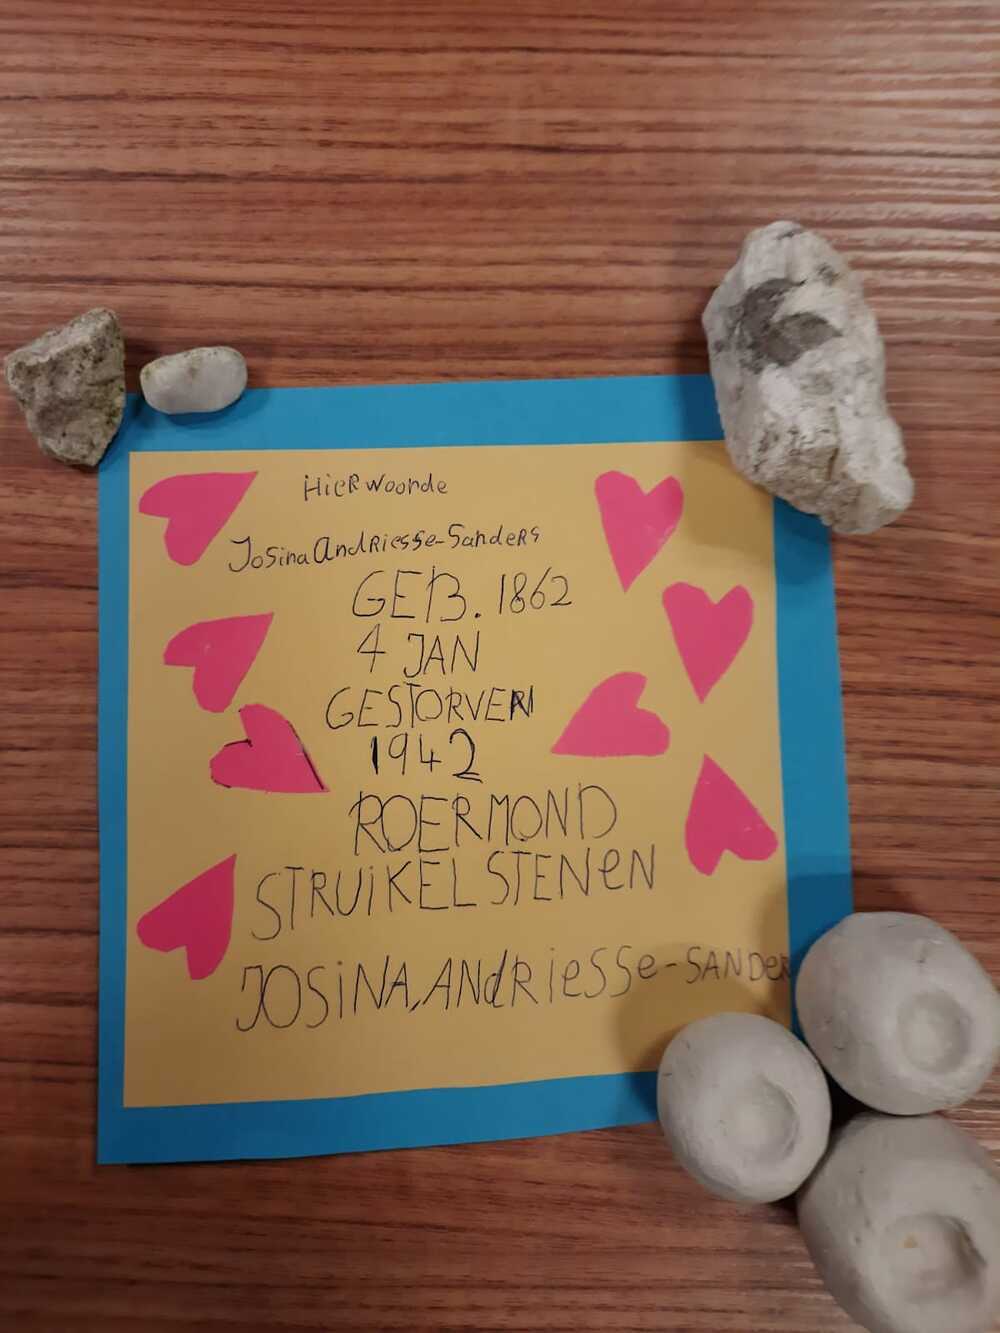 HieR woonde
Josina AndRiesse-SandeRs
GEB. 1862
4 JAN
GESTORVEN
1942
ROERMOND
STRUiKELSTENeN
JOSiNA, ANdRiesse-SANDeR